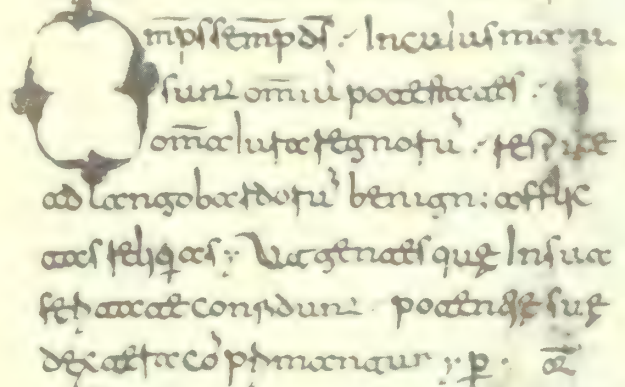 Om̅ps semp̅ ds̅. In cuius manu
sunt om̅iu̅ potestates. &
om̅a iura regnoru̅. respice
ad langobardoru̅ benign; afflic
tas reliqas; Ut gentes quę In sua
feritate confidunt potentię suę
dextera co̅primantur; p̅.